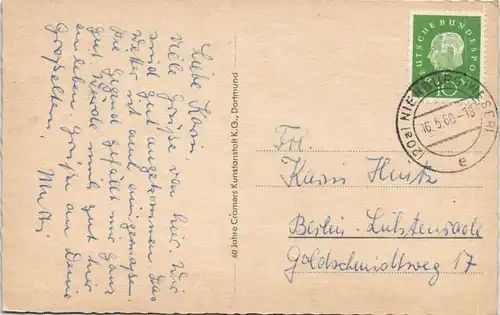 Liebe Karin,
viele Grüße von hier. Wir
sind gut angekommen. Das
Wetter ist auch einigermaßen.
Die Gegend gefällt mir ganz
gut. Würde mal gut hier
leben. Grüße an Deine
Großeltern,
Mutti
60 Jahre Cramers Kunstanstalt K.G., Dortmund
DEUTSCHE BUNDESPOST
10
(20a) NIENBURG (WESER)
16.5.60-18
e
Frl.
Karin Hentz
Berlin-Lichtenrade
Goldschmidtweg 17